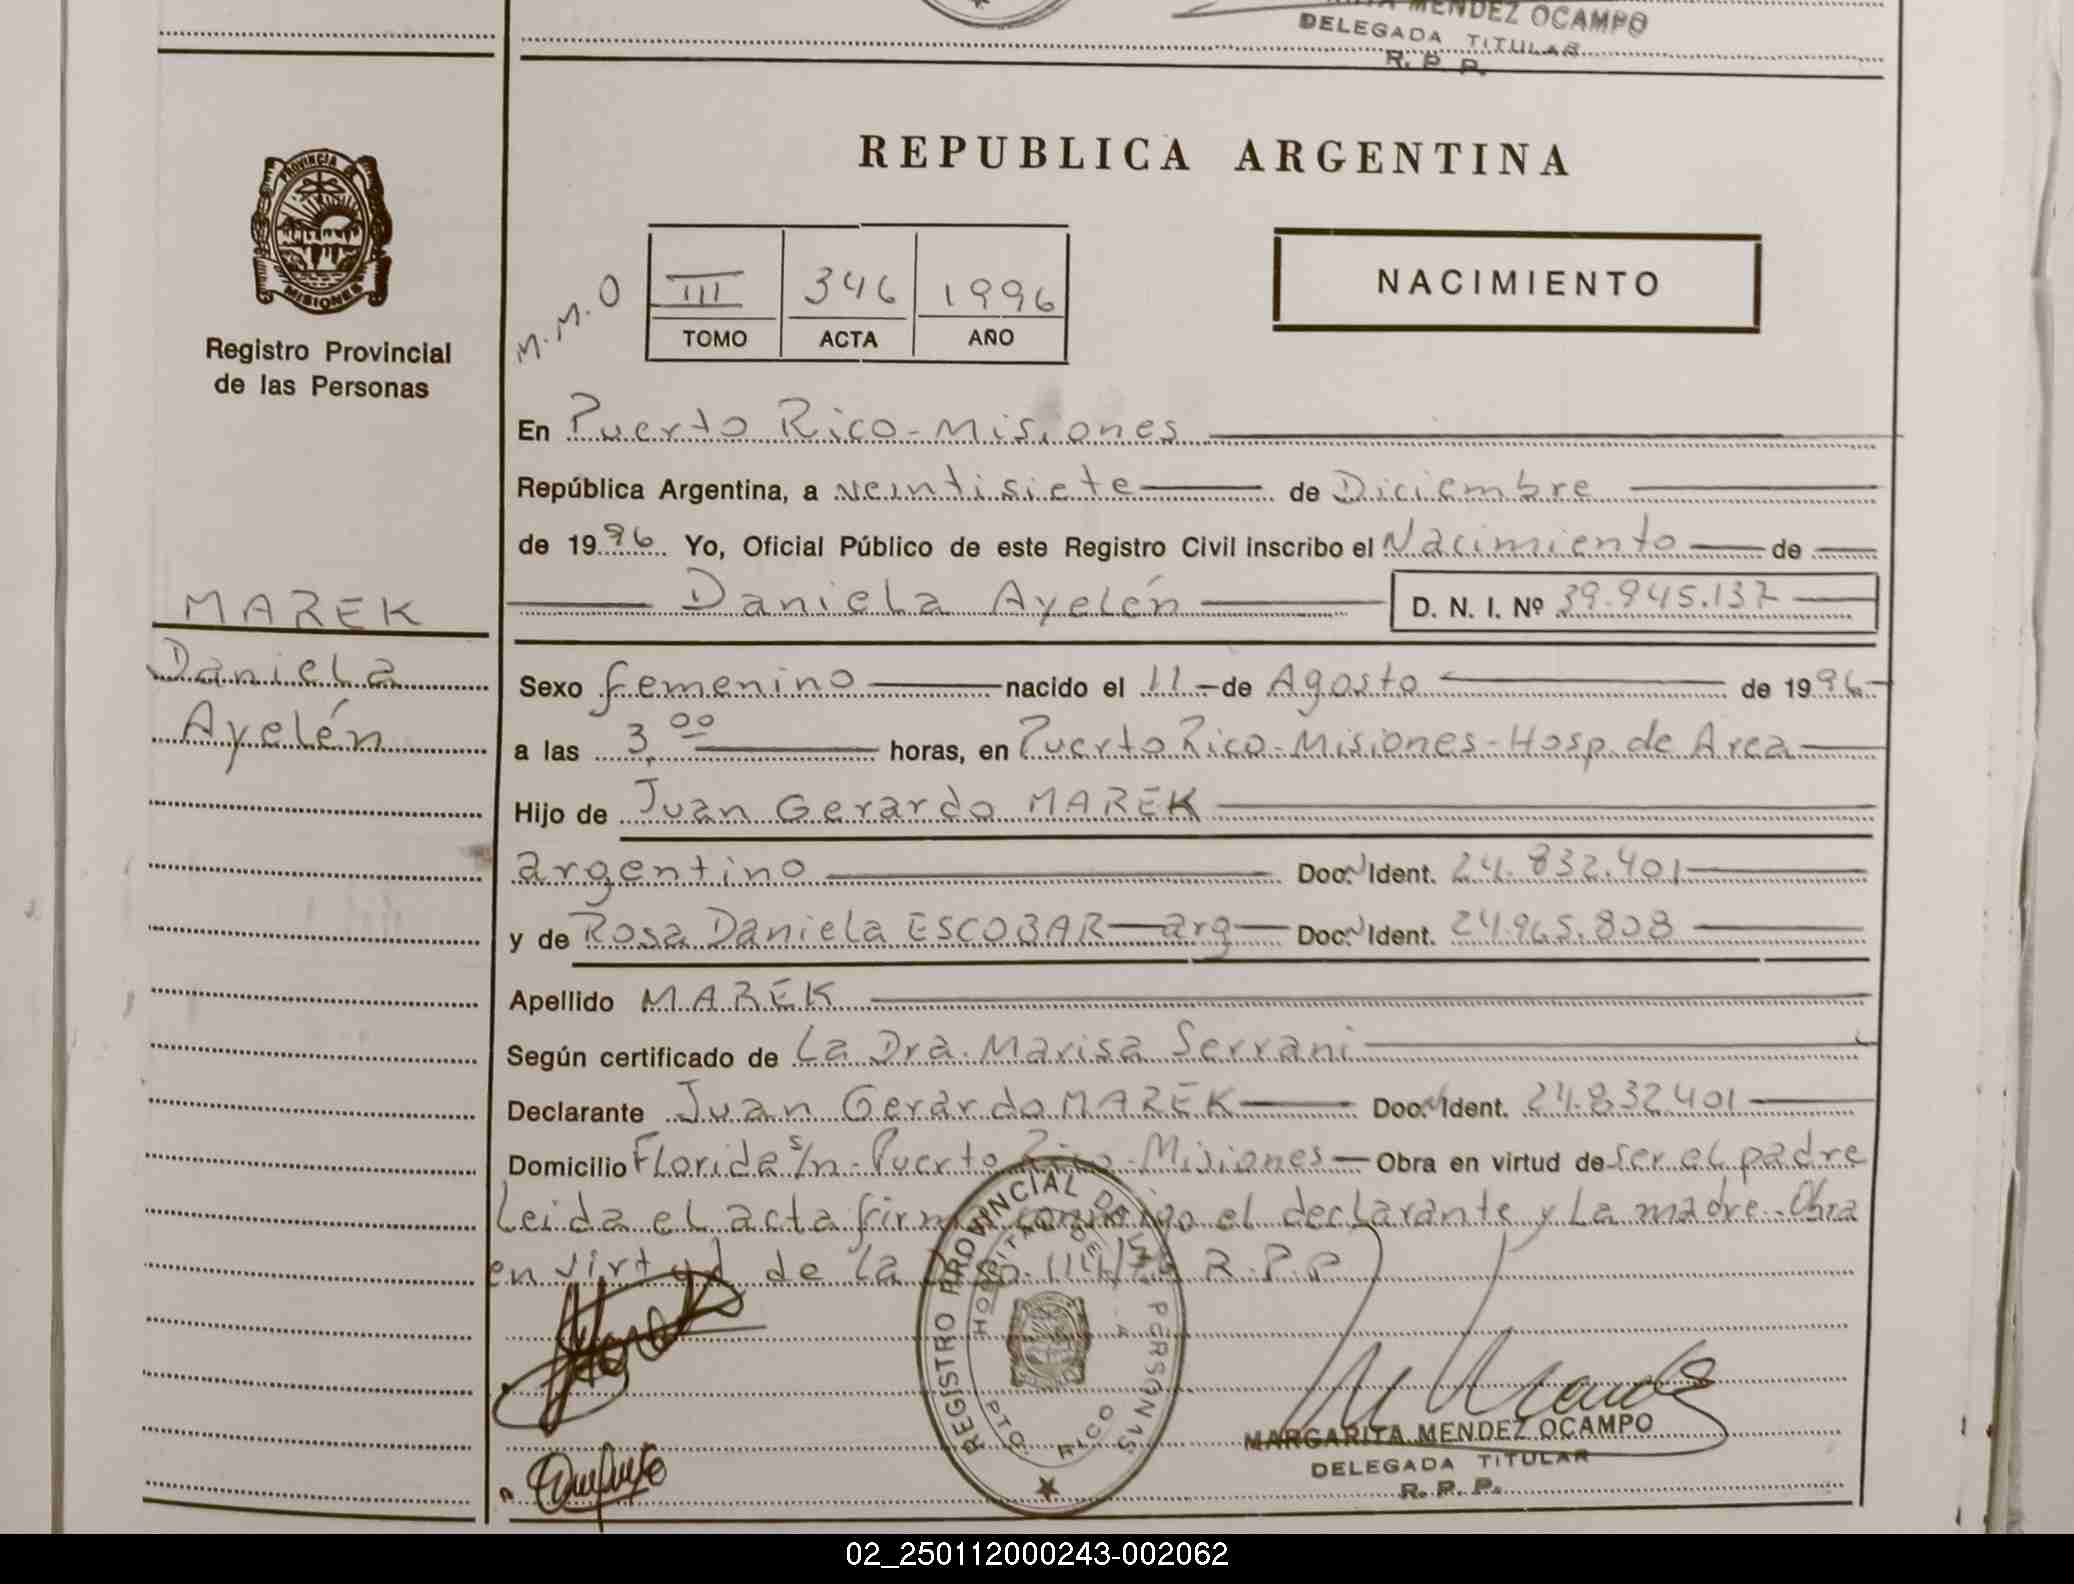 MENDEZ OCAMPO
DELEGADA TITULAR
R. P. P.
PROVINCIA DE
MISIONES
Registro Provincial
de las Personas
REPUBLICA ARGENTINA
M.M.O
III 346 1996
TOMO ACTA AÑO
NACIMIENTO
En Puerto Rico - Misiones
República Argentina, a veintisiete de Diciembre
de 1996 Yo, Oficial Público de este Registro Civil inscribo el Nacimiento de
Daniela Ayelén D. N. I. Nº 39.945.137
MAREK
Daniela
Ayelén
Sexo femenino nacido el 11 de Agosto de 1996
a las 3,00 horas, en Puerto Rico - Misiones - Hosp. de Area
Hijo de Juan Gerardo MAREK
argentino Doc. Ident. 24.832.401
y de Rosa Daniela ESCOBAR arg Doc. Ident. 24.965.808
Apellido MAREK
Según certificado de La Dra. Marisa Serrani
Declarante Juan Gerardo MAREK Doc. Ident. 24.832.401
Domicilio Florida s/n - Puerto Rico - Misiones Obra en virtud de ser el padre
Leida el acta firma conmigo el declarante y La madre - Obra
en virtud de La R.P.P
REGISTRO PROVINCIAL DE LAS PERSONAS
HOSPITAL DE
PTO. RICO
MARGARITA MENDEZ OCAMPO
DELEGADA TITULAR
R. P. P.
02_250112000243-002062